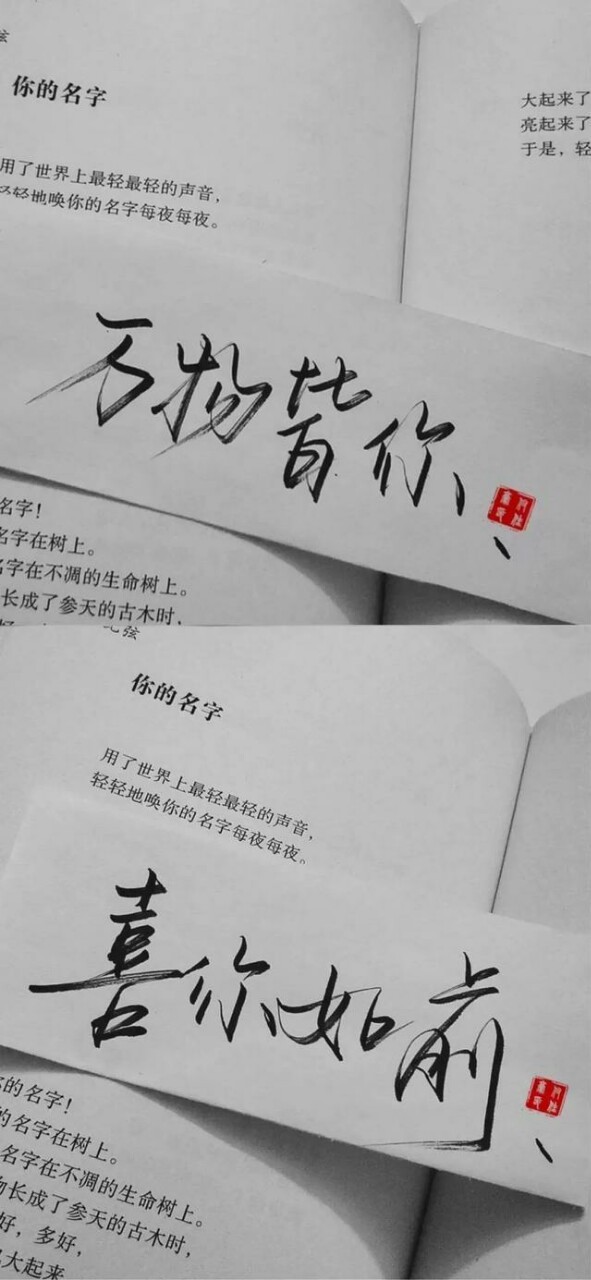 弦
你的名字
用了世界上最轻最轻的声音，
轻轻地唤你的名字每夜每夜。
大起来了
亮起来了
于是，轻
万物皆你、
名字！
名字在树上。
名字在不凋的生命树上。
长成了参天的古木时，
弦
你的名字
用了世界上最轻最轻的声音，
轻轻地唤你的名字每夜每夜。
喜你如前
的名字！
的名字在树上。
名字在不凋的生命树上。
长成了参天的古木时，
好，多好，
大起来